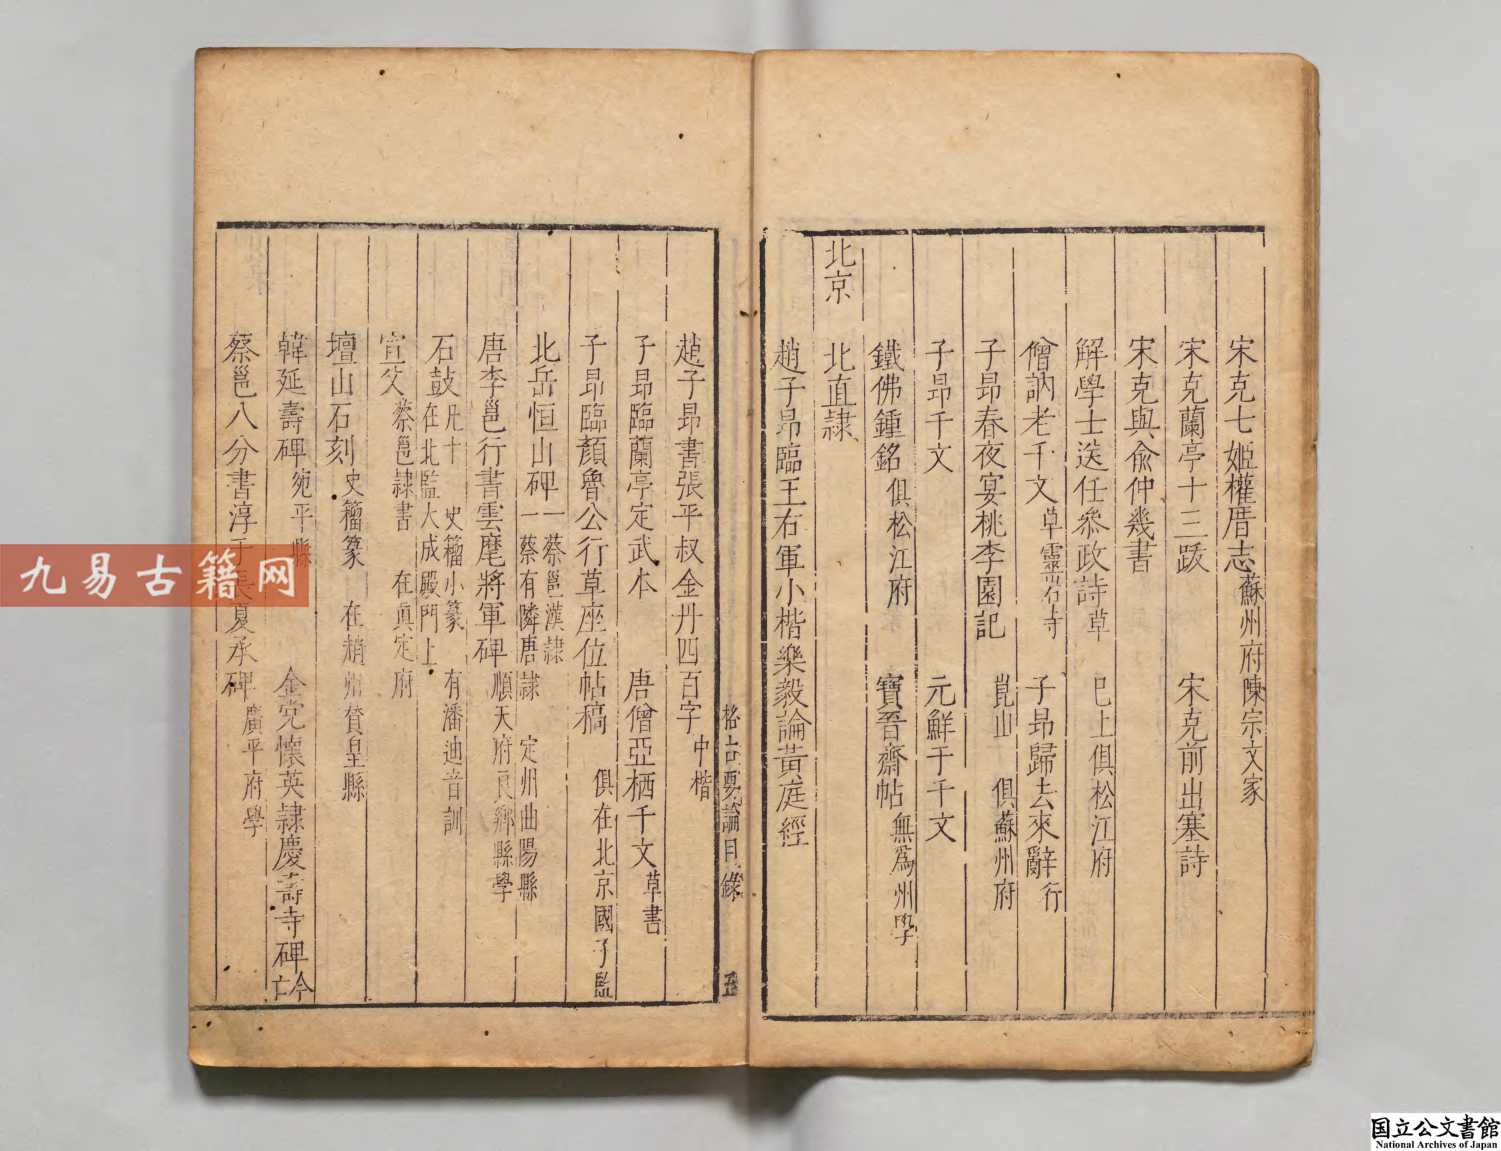 宋克七姬權厝志蘇州府陳宗文家
宋克蘭亭十三跋　宋克前出塞詩
宋克與俞仲幾書
解學士送任叅政詩草　巳上俱松江府
僧訥老千文草靈岩寺　子昂歸去來辭行
子昂春夜宴桃李園記　崑山　俱蘇州府
子昂千文　元鮮于千文
鐵佛鍾銘俱松江府　寶晉齋帖無為州學
北京　北直隷
趙子昂臨王右軍小楷樂毅論黃庭經
格古要論目錄
趙子昂書張平叔金丹四百字中楷
子昂臨蘭亭定武本　唐僧亞栖千文草書
子昂臨顏魯公行草座位帖稿　俱在北京國子監
北岳恒山碑一蔡邕漢隷
一蔡有隣唐隷　定州曲陽縣
唐李邕行書雲麾將軍碑順天府良鄉縣學
石鼓凡十　史籀小篆　有潘迪音訓
在北監大成殿門上
宣父蔡邕隷書　在真定府
壇山石刻史籀篆　在趙州賛皇縣
韓延壽碑宛平縣　金党懷英隷慶壽寺碑今亡
蔡邕八分書淳于長夏承碑廣平府學
九易古籍网
国立公文書館
National Archives of Japan